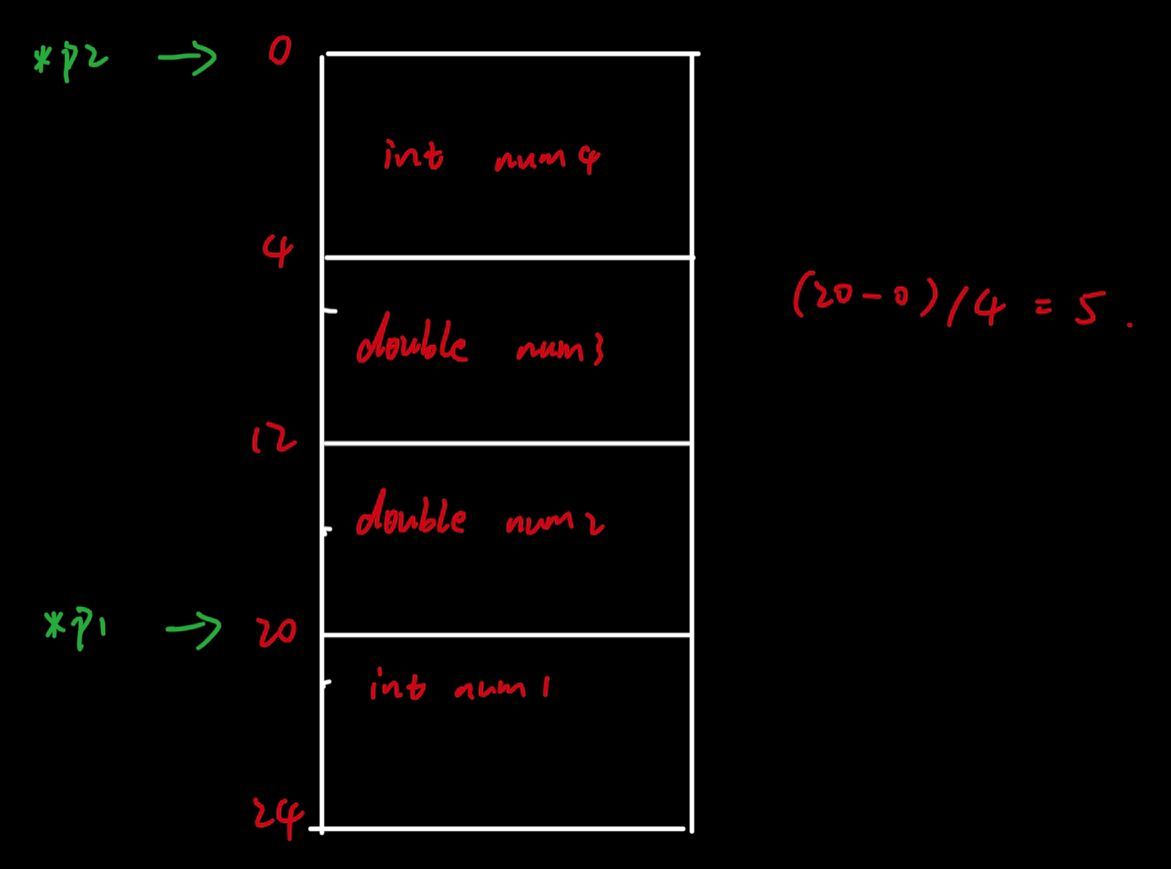 *p2 → 0
int num4
4
(20-0)/4 = 5.
double num3
12
double num2
*p1 → 20
int num1
24